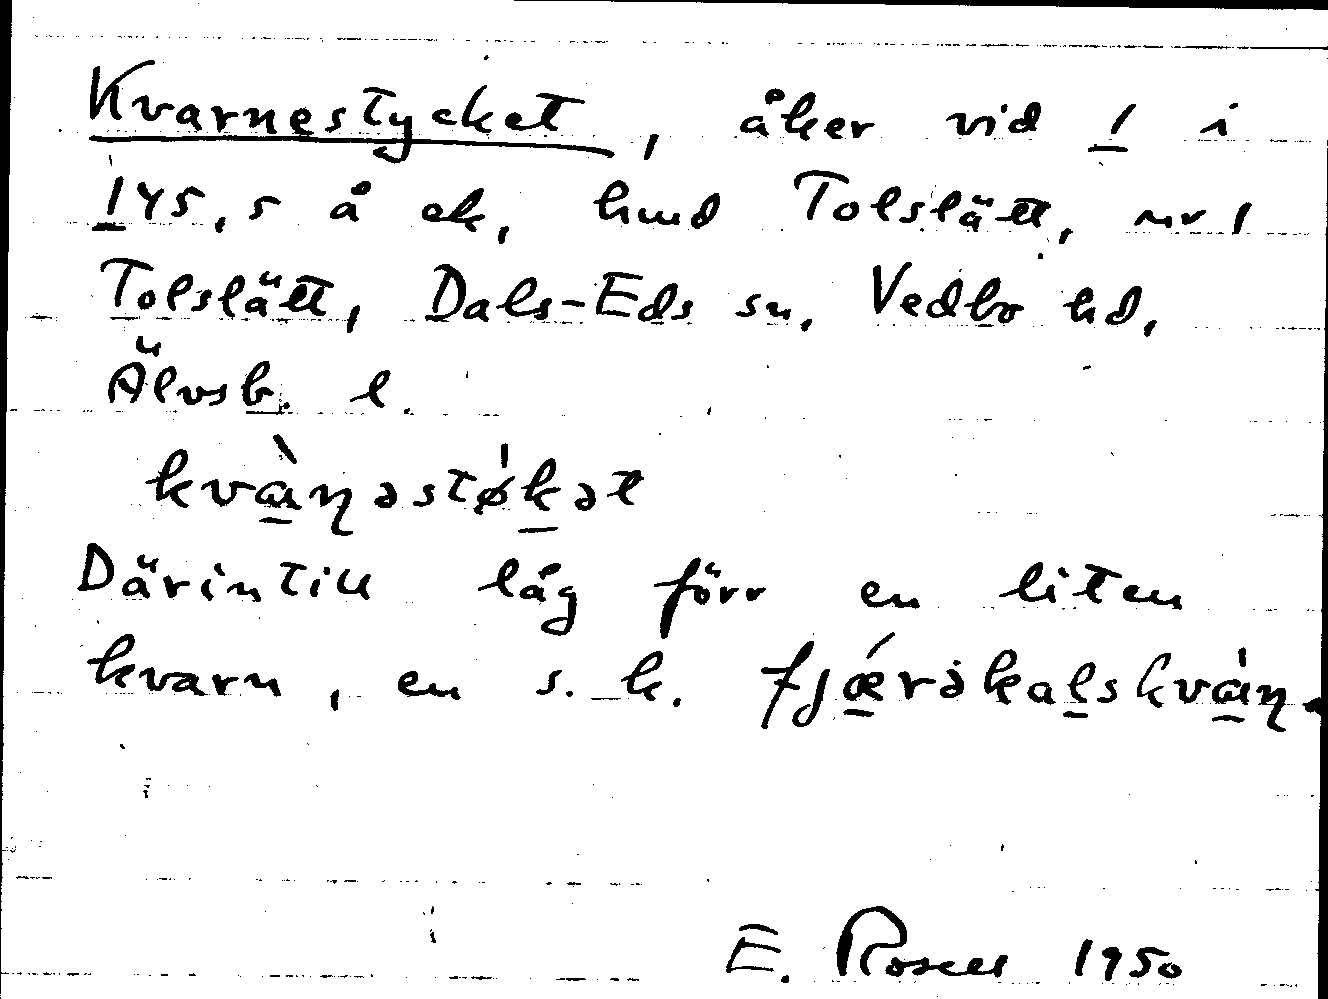 Kvarnestycket, åker vid 1 i
145,5 å ek, hmd Tolslätt, nr 1
Tolslätt, Dals-Eds sn, Vedbo hd,
Älvsb. l.
kvàṇəstǿkət
Därintill låg förr en liten
kvarn, en s. k. fjǽrəkalskvàṇ.
E. Rosell 1950